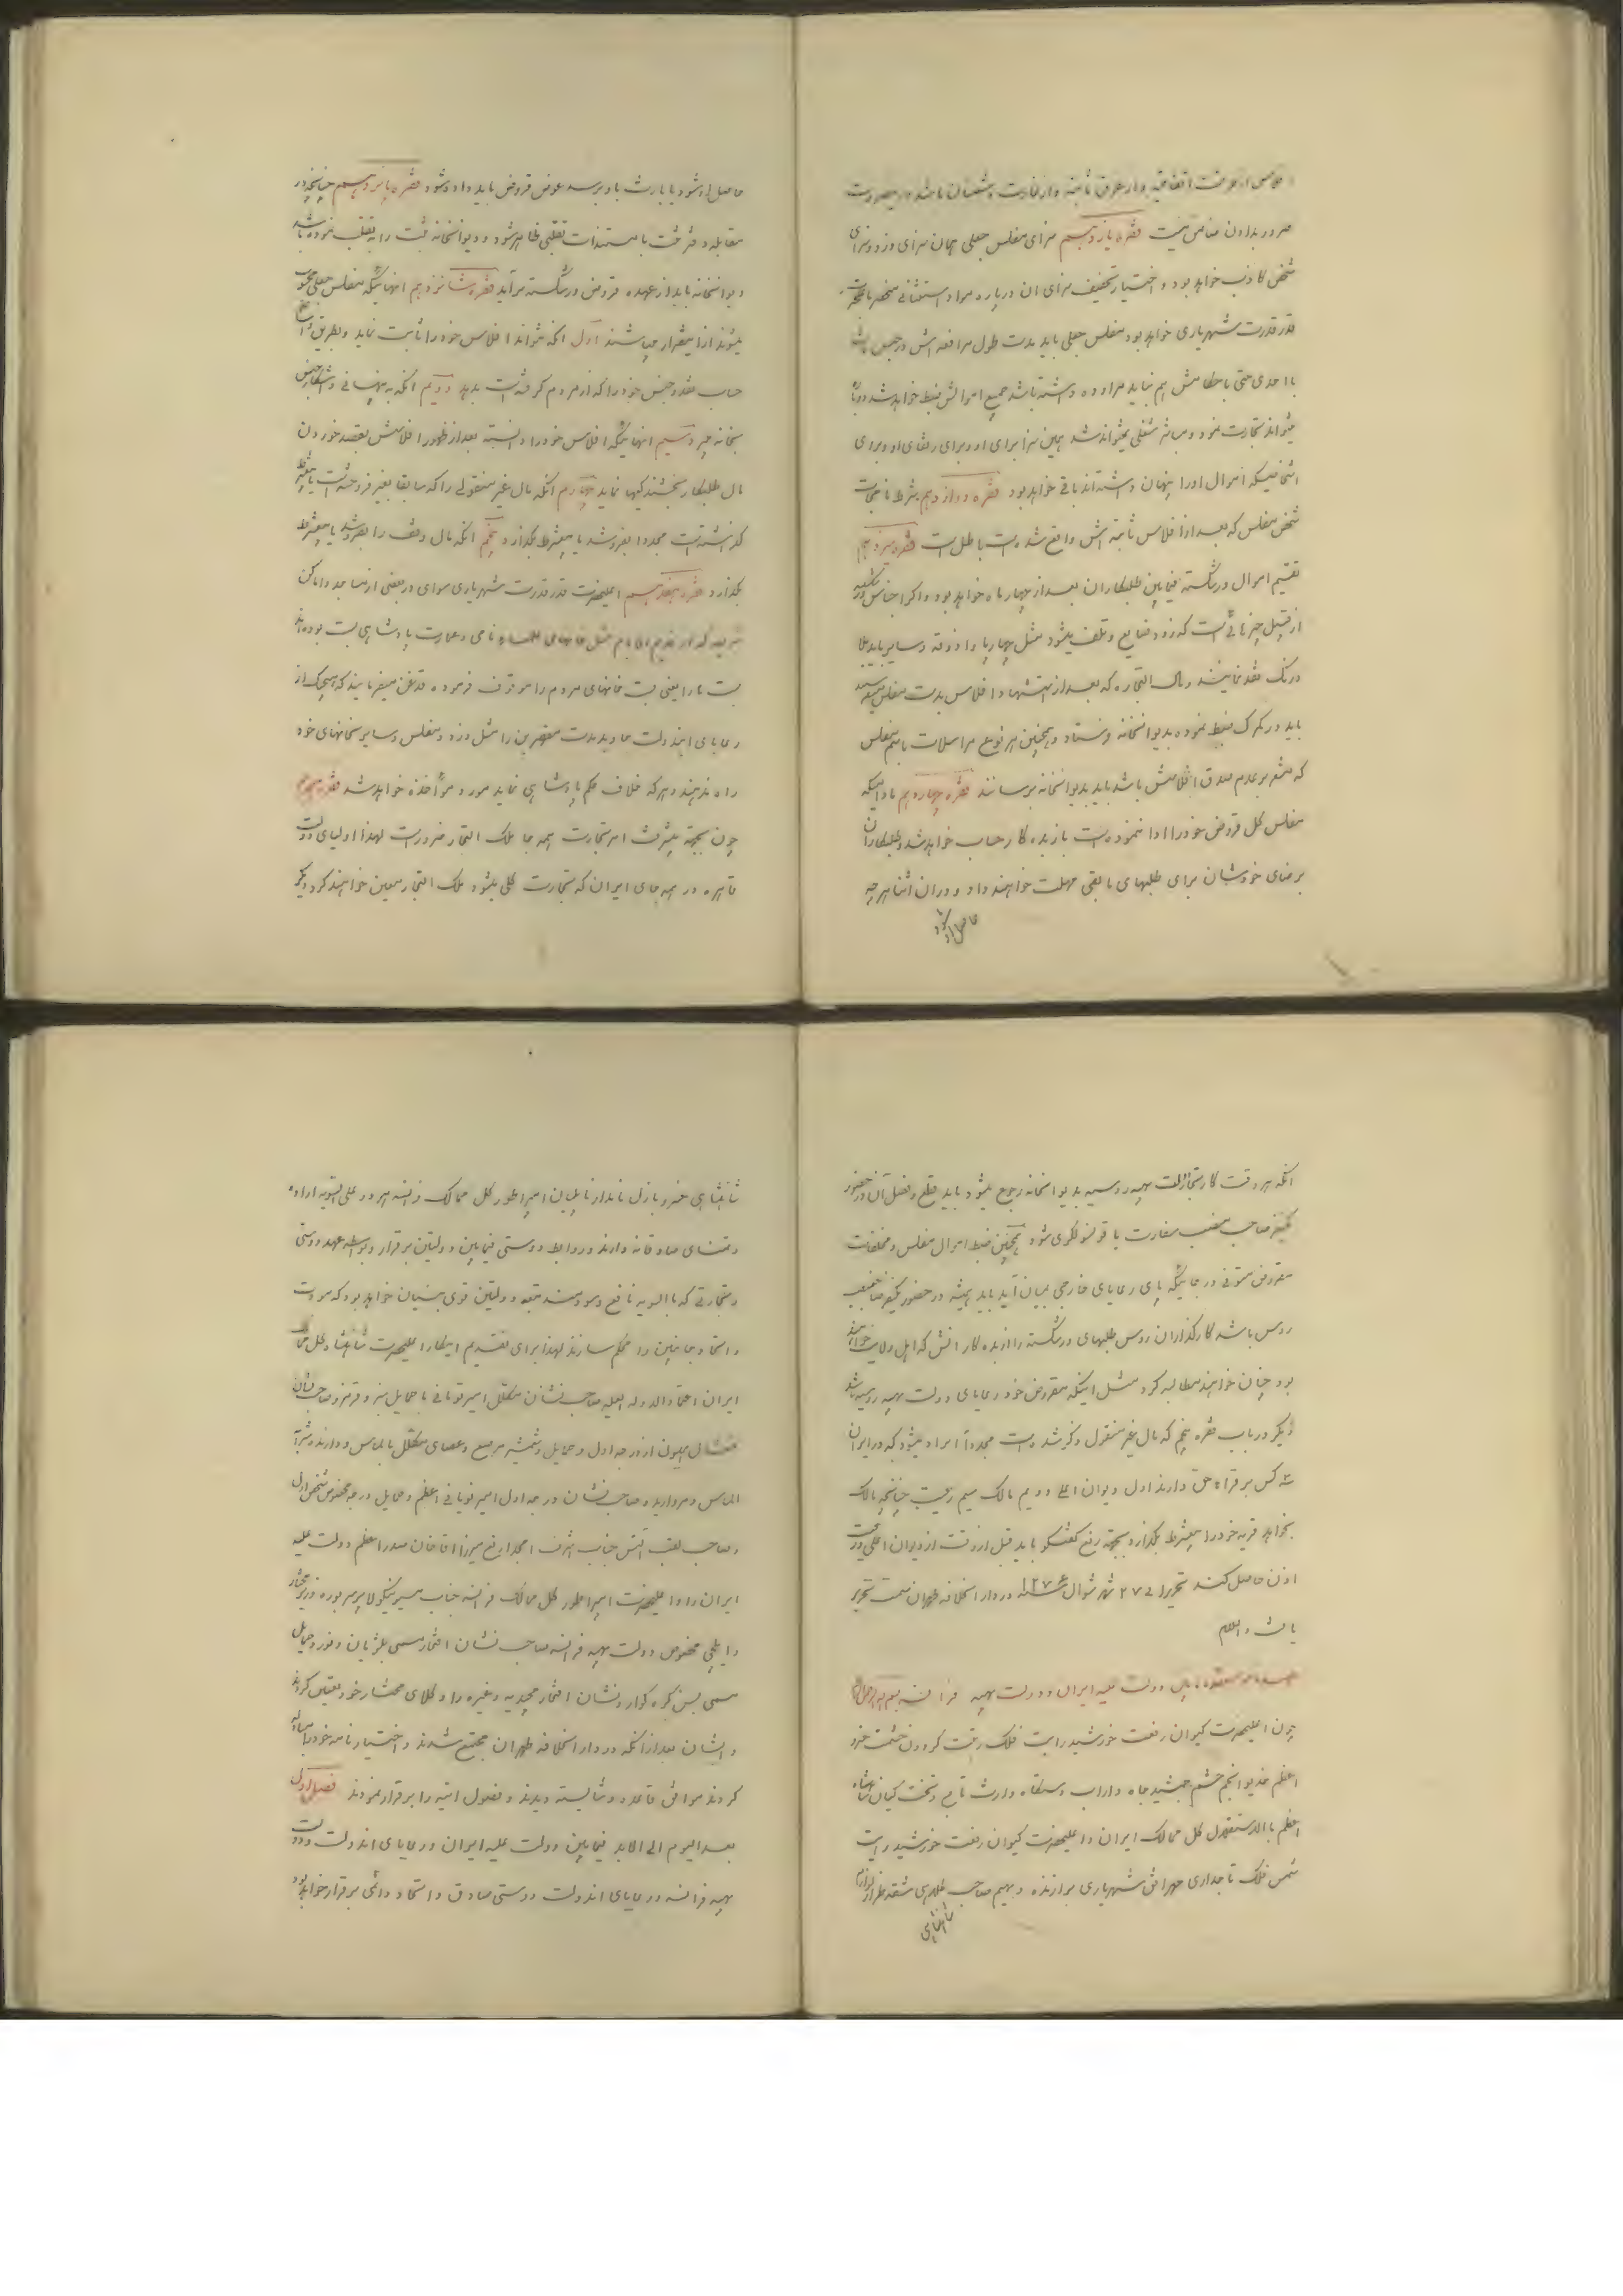 ضرور بدادن ضامن نیست فقره یازدهم سزای مفلس جعلی همان سزای دزد و سزای
شخص کاذب خواهد بود و اختیار تخفیف سزای ان درباره موارد استثنائی منحصر باعلیحضرت
قدرقدرت شهریاری خواهد بود مفلس جعلی باید مدت طول مرافعه اش در حبس باشد
با احدی حتی با خطا مش هم نباید مراوده داشته باشد جمیع اموالش ضبط خواهد شد دوباره
نمیتواند تجارت نمود و مباشر شغلی نمیتواند شد همین سزا برای او و برای رفقای او و برای
اشخاصیکه اموال اورا پنهان داشته‌اند باقی خواهد بود فقره دوازدهم شرط نامجات
شخص مفلس که بعد از افلاس ثابته اش واقع شده است باطل است فقره سیزدهم
تقسیم اموال ورشکسته فیمابین طلبکاران بعد از چهار ماه خواهد بود و اگر اجناس ورشکسته
از قبیل چیزهائی است که زود ضایع و تلف میشود مثل چهارپا و اذوقه و سایر باید بلا
درنک نقد نمایند و مال التجاره که بعد از اشتهار افلاس بدست مفلس میرسد
باید در کمرک ضبط نموده بدیوانخانه فرستاد و همچنین هر نوع مراسلات باسم مفلس
که مشعر بر عدم صدق افلاسش باشد باید بدیوانخانه برسانند فقره چهاردهم مادامیکه
مفلس کل قروض خودرا ادا ننموده است بازبده کار حساب خواهد شد و طلبکاران
برضای خودشان برای طلبهای مابقی مهلت خواهند داد و در ان اثنا هرچه
حاصل او شود
حاصل او شود یا بارث باو برسد عوض قروض باید داده شود فقره پانزدهم چنانچه در
مقابله دفتر ثبت با مستندات تقلبی ظاهر شود و دیوانخانه ثبت را به تقلب نموده باشد
دیوانخانه باید از عهده قروض ورشکسته برآید فقره شانزدهم انهائیکه مفلس جعلی محسوب
میشوند از اینقرار میباشند اول انکه نتواند افلاس خودرا ثابت نماید و بطریق راست
حساب نقد و جنس خودرا که از مردم کرفته است بدهد دویم انکه به پنهانی و اشکار جنس
بخانه برد سیم انهائیکه افلاس خودرا دانسته بعد از ظهور افلاسش بقصد خوردن
مال طلبکار بخشندکیها نماید چهارم انکه مال غیر منقولی را که سابقا بغیر فروخته است یا بشرط
کذاشته است مجددا بفروشد یا بشرط بکذارد پنجم انکه مال وقف را بفروشد یا بشرط
بکذارد فقره هفدهم اعلیحضرت قدرقدرت شهریاری سوای در بعضی از مساجد و اماکن
شریفه که از قدیم الایام مثل خانهای علماء نامی و عمارت پادشاهی بست بوده‌اند
بست ها را یعنی بست خانهای مردم را موقوف فرموده قدغن میفرمایند که هیچیک از
رعایای ایندولت علیه مقصرین را مثل دزد و مفلس و سایر بخانهای خود
راه ندهند و هرکه خلاف حکم پادشاهی نماید مورد مؤاخذه خواهد شد فقره هیجدهم
چون بجهة پیشرفت امر تجارت همه جا ملک التجار ضرور است لهذا اولیای دولت
قاهره در همه جای ایران که تجارت کلی میشود ملک التجار معین خواهند کرد دیکر
انکه هر وقت کار تجار دولت بهیه روسیه بدیوانخانه رجوع میشود باید قطع و فصل آن در حضور
یکنفر صاحب منصب سفارت یا قونسولکری شود همچنین ضبط اموال مفلس و مخلفات
مقروض متوفی در جائیکه پای رعایای خارجی بمیان آید باید همیشه در حضور یکنفر صاحب منصب
روس باشد کارکذاران روس طلبهای ورشکسته را از بده کارانش که اهل ولایت خواهند
بود چنان خواهند مطالبه کرد مثل اینکه مقروض خود رعایای دولت بهیه روسیه باشد
دیکر در باب فقره پنجم که مال غیر منقول ذکر شده است مجددا ایراد میشود که در ایران
سه کس بر قراء حق دارند اول دیوان اعلی دویم مالک سیم رعیت چنانچه مالک
بخواهد قریه خودرا بشرط بکذارد بجهة رفع کفتکو باید قبل از وقت از دیوان اعلی و رعیت
اذن حاصل کنند تحریرا فی ۲۷ شهر شوال سنه ۱۲۷۶ در دار الخلافه طهران سمت تحریر
یافت والسلام
عهدنامه منعقده مابین دولت علیه ایران و دولت بهیه فرانسه بسم الله الرحمن الرحیم
چون اعلیحضرت کیوان رفعت خورشید رایت فلک رتبت کردون حشمت خسرو
اعظم خدیو انجم حشم جمشید جاه داراب دستکاه وارث تاج و تخت کیان شاهنشاه
اعظم بالاستقلال کل ممالک ایران و اعلیحضرت کیوان رفعت خورشید رایت
شمس فلک تاجداری مهر افق شهریاری برازنده دیهیم صاحب کلاهی شقه طراز لوای
شاهنشاهی
شاهنشاهی خسرو باذل نامدار ناپلیان امپراطور کل ممالک فرانسه هر دو علی السویه اراده
و تمنای صادقانه دارند و روابط دوستی فیمابین دولتین برقرار و بواسطه عهد دوستی
و تجارتی که بالسویه نافع و سودمند تبعه دولتین قوی بنیان خواهد بود که مودت
و اتحاد جانبین را محکم سازند لهذا برای تقدیم اینکار اعلیحضرت شاهنشاه کل ممالک
ایران اعتماد الدوله العلیه صاحب نشان مکلل امیر تومانی با حمایل سبز و قرمز و صاحب نشان
تمثال همایون از درجه اول و حمایل و شمشیر مرصع و عصای مکلل بالماس و دارنده شرابه
الماس و مروارید و صاحب نشان درجه اول امیر نویانی اعظم و حمایل درجه مخصوص شخص اول
و صاحب لقب التش جناب اشرف امجد ارفع میرزا اقا خان صدر اعظم دولت علیه
ایران را و اعلیحضرت امپراطور کل ممالک فرانسه جناب مسیو نیکولا پرسپر بوره وزیر مختار
و ایلچی مخصوص دولت بهیه فرانسه صاحب نشان افتخار مسمی بلژیان دنور و حمایل
مسمی بسن کره کوار و نشان افتخار مجیدیه و غیره را وکلای مختار خود تعیین کردند
و ایشان بعد از انکه در دار الخلافه طهران مجتمع شدند و اختیار نامه خودرا مبادله
کردند موافق قاعده و شایسته دیدند و فصول اتیه را برقرار نمودند فصل اول
بعد الیوم الی الابد فیمابین دولت علیه ایران و رعایای اندولت و دولت
بهیه فرانسه و رعایای اندولت دوستی صادق و اتحاد دائمی برقرار خواهد بود